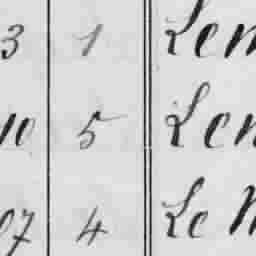 3 1 Lem
10 5 Len
07 4 Le M